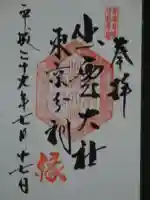 奉拝
出雲大社
東京分祠
平成二十九年七月十七日
縁